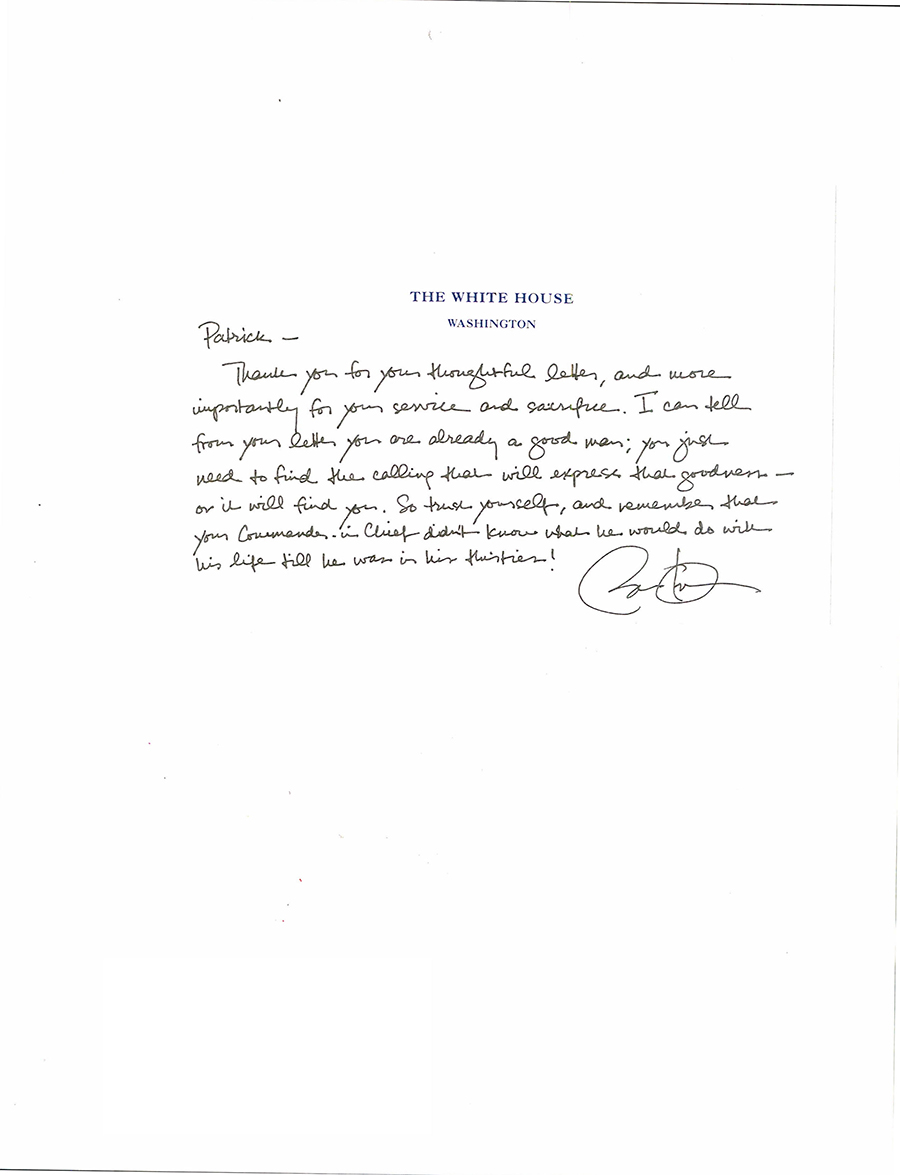 THE WHITE HOUSE
WASHINGTON
Patrick —
Thank you for your thoughtful letter, and more
importantly for your service and sacrifice. I can tell
from your letter you are already a good man; you just
need to find the calling that will express that goodness —
or it will find you. So trust yourself, and remember that
your Commander-in Chief didn't know what he would do with
his life till he was in his thirties!